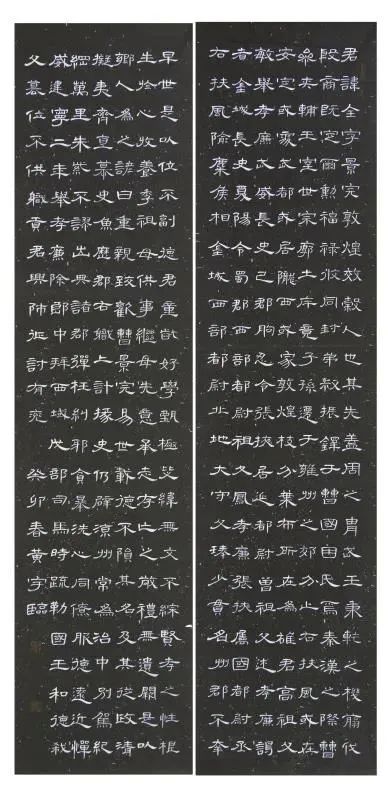 君諱全字景完敦煌效穀人也其先蓋周之胄武王秉乾之機翦伐
殷商既定爾勳福祿攸同封弟叔振鐸于曹國因氏焉秦漢之際曹
參夾輔王室世宗廓土斥竟子孫遷于雍州之郊分止右扶風或在
安定或處武都或居隴西或家敦煌枝分葉布所在為雄君高祖父
敏舉孝廉武威長史巴郡朐忍令張掖居延都尉曾祖父述孝廉謁
者金城長史夏陽令蜀郡西部都尉祖父鳳孝廉張掖屬國都尉丞
右扶風隃麋侯相金城西部都尉北地大守父琫少貫名州郡不幸
早世是以位不副德君童齔好學甄極毖緯無文不綜賢孝之性根
生於心收養季祖母供事繼母先意承志存亡之敬禮無遺闕是以
鄉人為之諺曰重親致歡曹景完易世載德不隕其名及其從政清
擬夷齊直慕史魚歷郡右職上計掾史仍辟涼州常為治中別駕紀
綱萬里朱紫不謬出典諸郡彈枉糾邪貪暴洗心同僚服德遠近憚
威建寧二年舉孝廉除郎中拜西域戊部司馬時疏勒國王和德弒
父篡位不供職貢君興師征討有兖 癸卯春黃宇臨